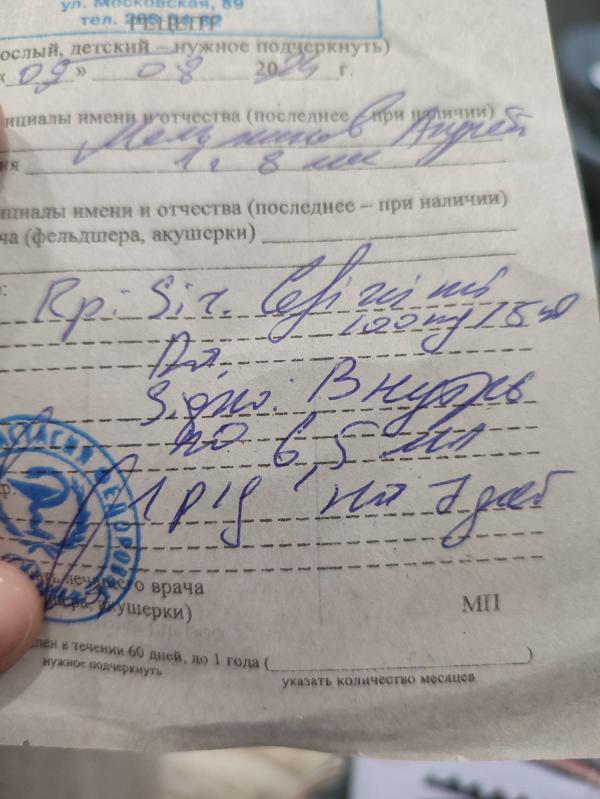 ул. Московская, 89
тел.
РЕЦЕПТ
ослый, детский – нужное подчеркнуть)
«09» 08 2024 г.
ициалы имени и отчества (последнее – при наличии)
Андрей
ия 1 г 8 мес
ициалы имени и отчества (последнее – при наличии)
ча (фельдшера, акушерки)
Rp: Sir. Cefiximi
100mg/5ml
D.S. Внутрь
по 6,5 мл
1 р/д на 7 дней
лечащего врача
акушерки)
МП
лен в течении 60 дней, до 1 года (
)
нужное подчеркнуть
указать количество месяцев